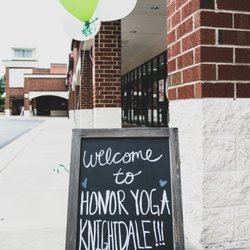 Welcome
to
HONOR YOGA
KNIGHTDALE!!!